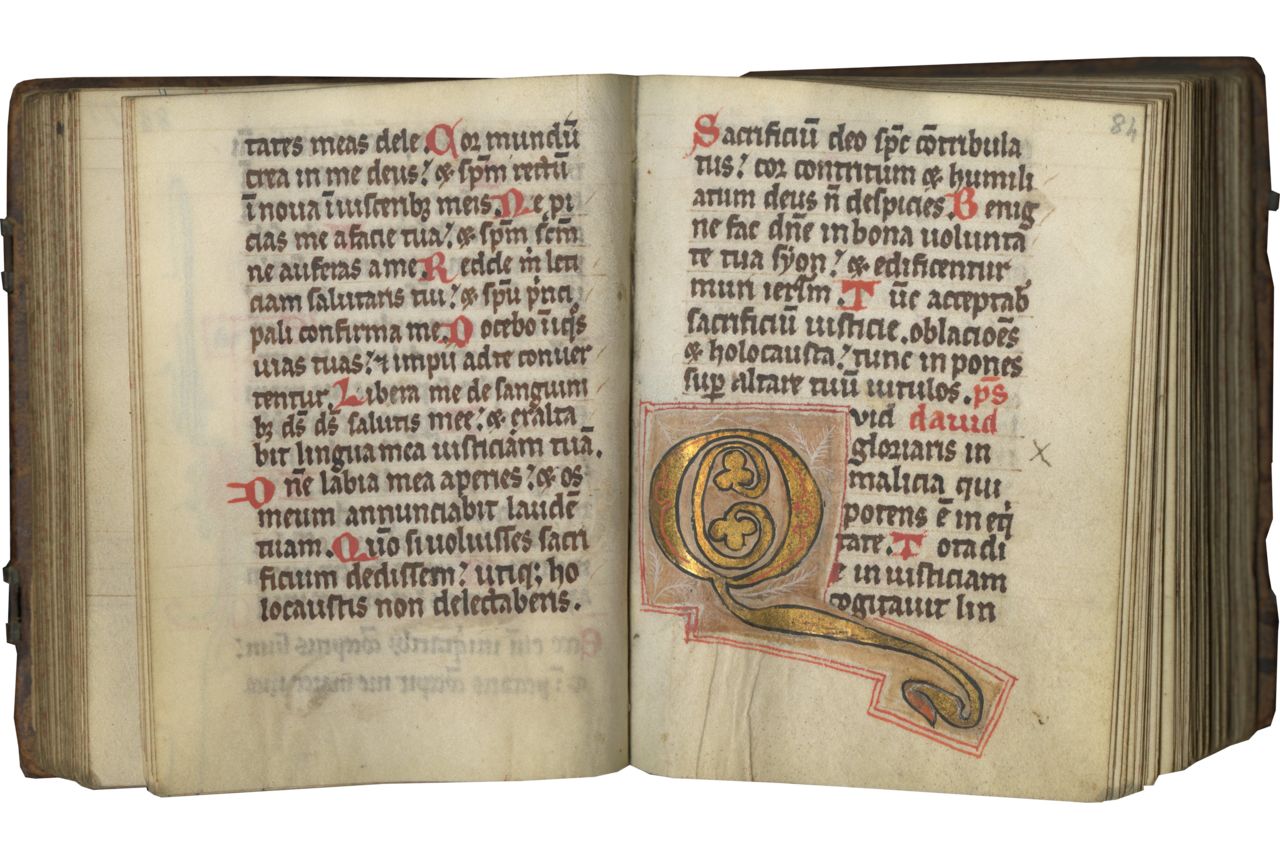 tates meas dele. Cor mundū
crea in me deus: & sp̄m rectū
ī noua ī uisceribꝫ meis. Ne pi
cias me a facie tua: & sp̄m sc̄m
ne auferas a me. Redde m̄ leti
ciam salutaris tui: & sp̄u prīnci
pali confirma me. Docebo īiqͦs
uias tuas: & impii ad te conuer
tentur. Libera me de sanguini
bꝫ ds̄ ds̄ salutis mee: & exalta
bit lingua mea iusticiam tuā.
Dn̄e labia mea aperies: & os
meum annunciabit laudē
tuam. Qūo si uoluisses sacri
ficium dedissem: utiqꝫ ho
locaustis non delectaberis.
84
Sacrificiū deo sp̄c cōtribula
tus: cor contritum & humili
atum deus n̄ despicies. Benig
ne fac dn̄e in bona uolunta
te tua syon: & edificentur
muri ierl̄m. Tūc acceptab̄
sacrificiū iusticie. oblacioēs
& holocausta: tunc inpones
suꝑ altare tuū uitulos. p̄s
Quid dauid
gloriaris in
malicia qui
potens ē in eq̄
tate. Tota di
e iniusticiam
cogitauit lin